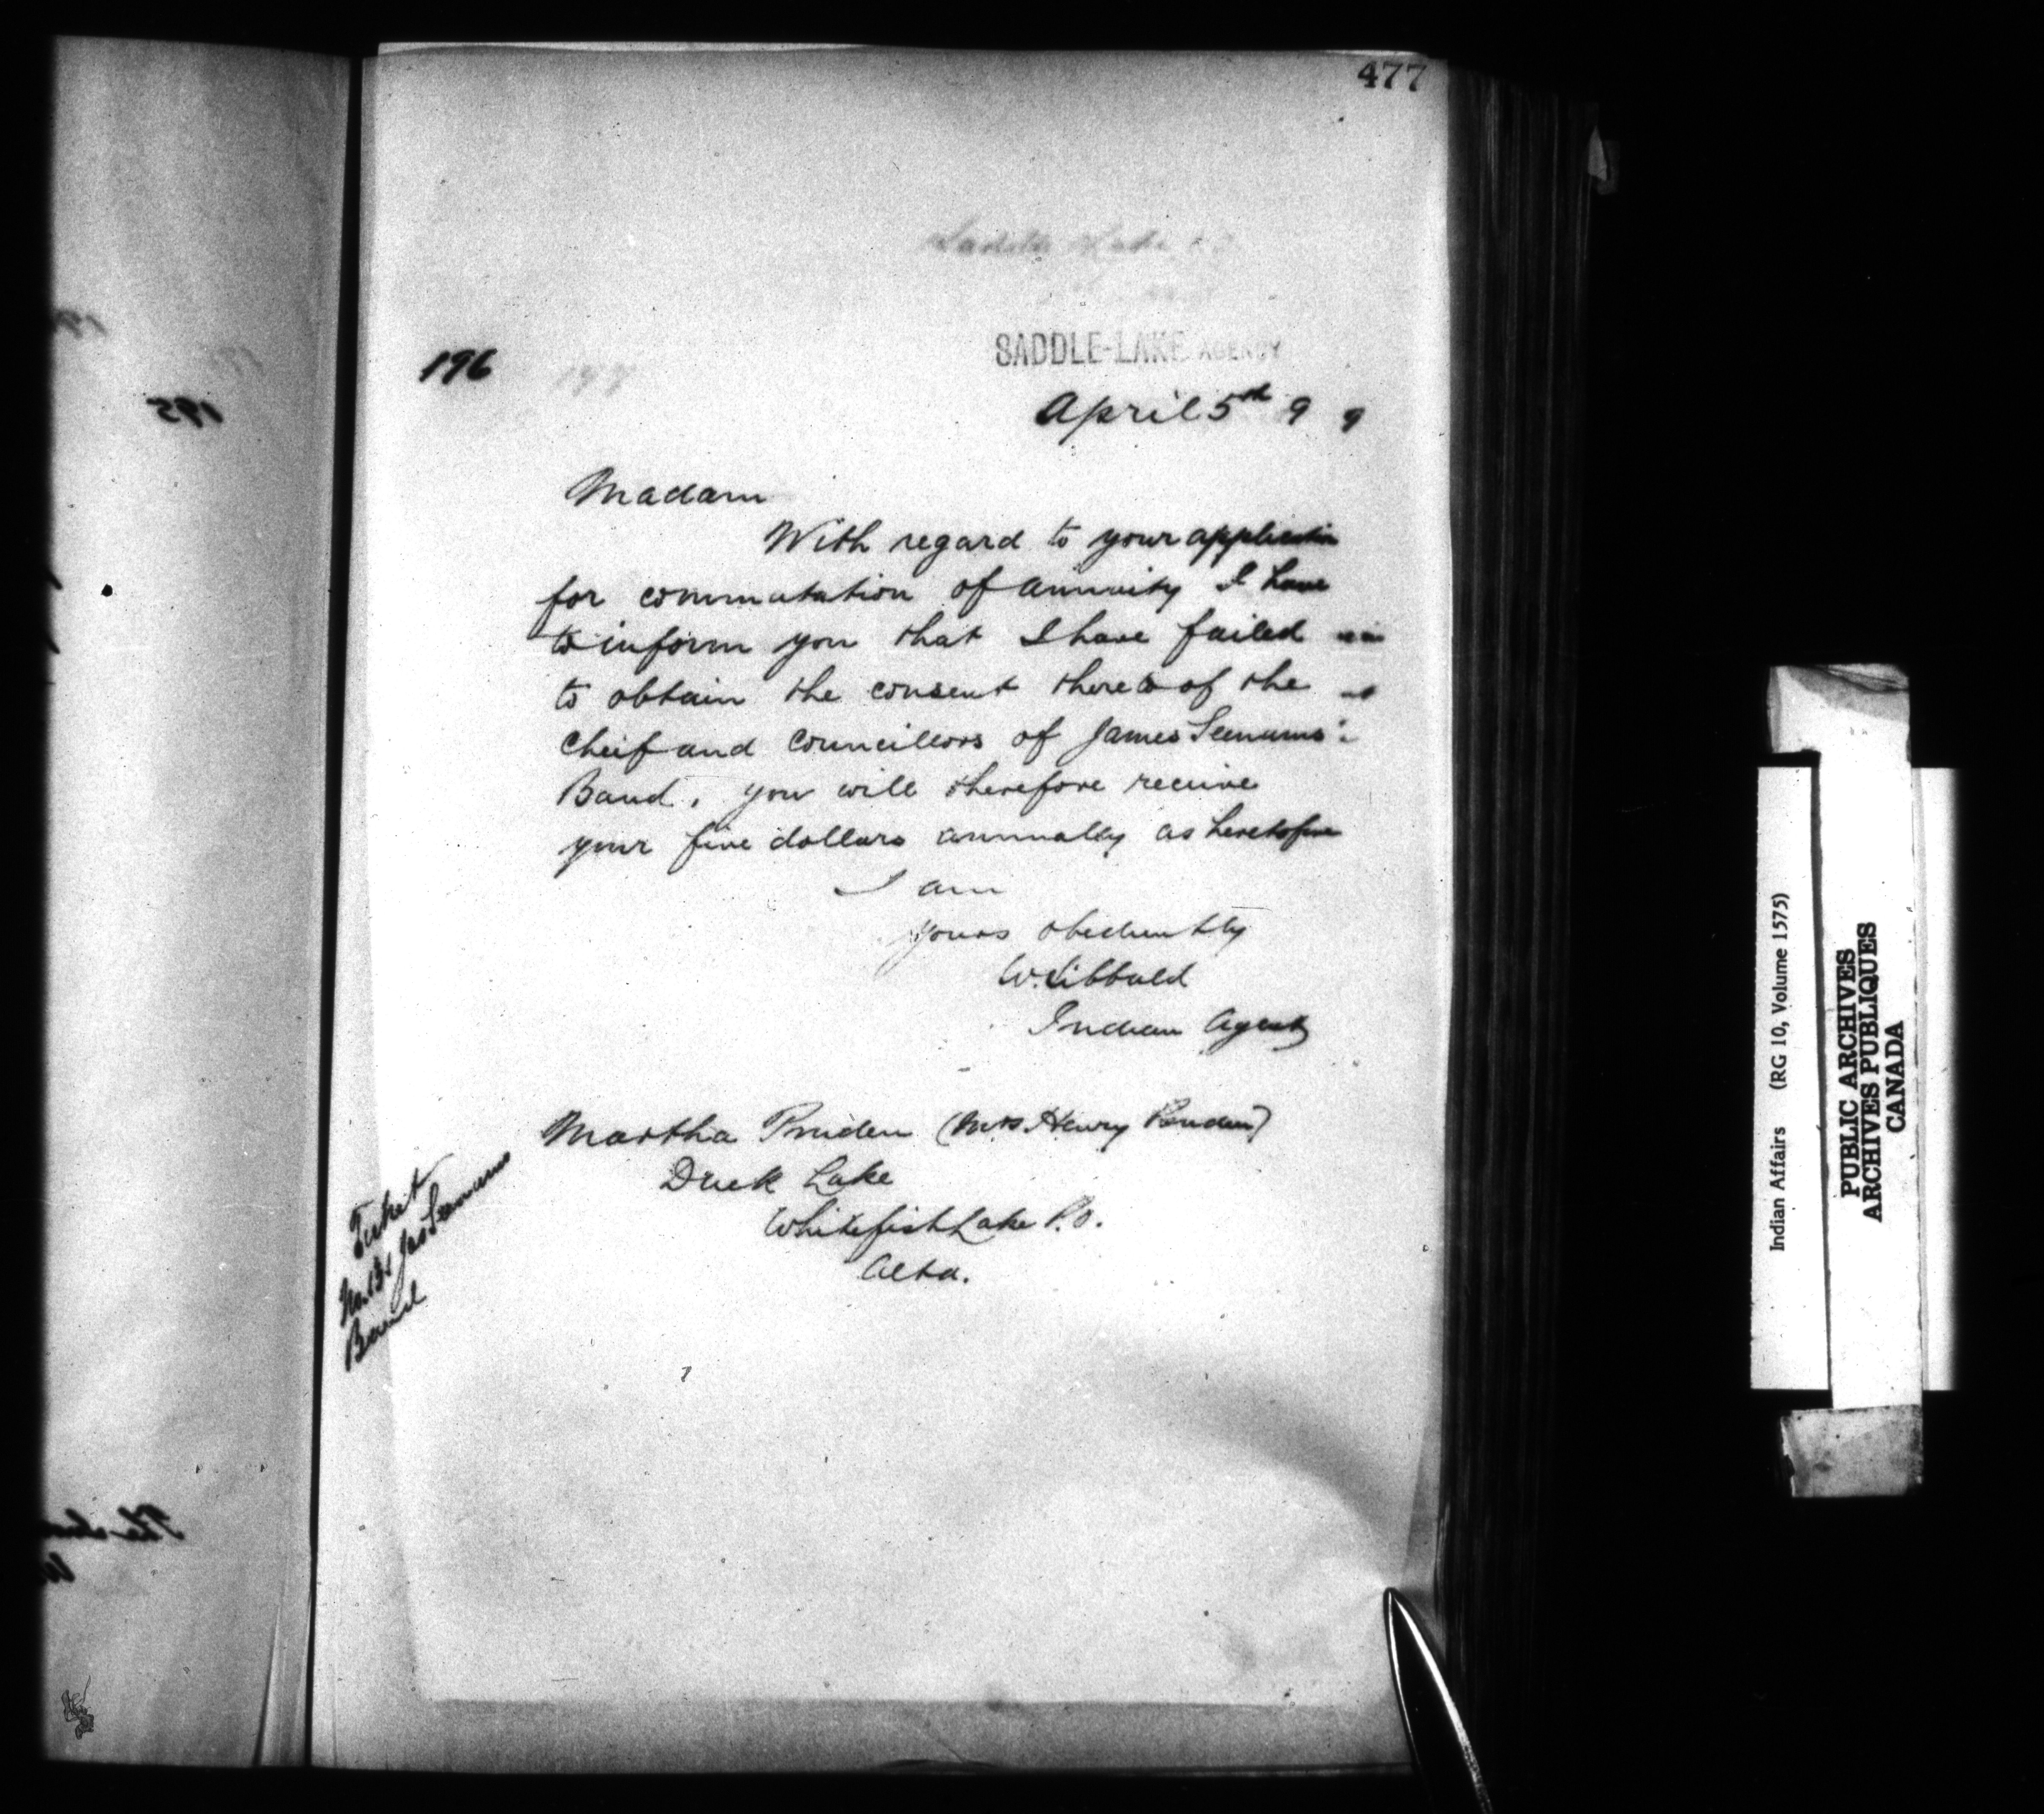 477
Saddle Lake
196
SADDLE-LAKE AGENCY
April 5th 9 9
Madam
With regard to your application
for commutation of annuity I have
to inform you that I have failed
to obtain the consent thereto of the
Cheif and Councillors of James Seenums'
Band. you will therefore receive
your five dollars annually as heretofore
I am
yours obediently
W. Sibbald
Indian Agent
Martha Pruden (Mrs Henry Pruden)
Duck Lake
Whitefish Lake P.O.
Alta.
Ticket
No. 131 Jas Seenums
Band
195
Indian Affairs (RG 10, Volume 1575)
PUBLIC ARCHIVES
ARCHIVES PUBLIQUES
CANADA